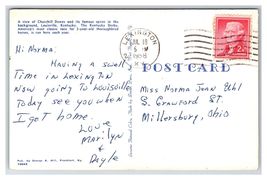 A view of Churchill Downs and its famous spires in the
background, Louisville, Kentucky. The Kentucky Derby,
America's most classic race for 3-year-old thoroughbred
horses, is run here each year.
Hi Norma,
Having a swell
Time in Lexington
Now going to Louisville
Today see you when
I got home.
Love
Marilyn
&
Doyle
LEXINGTON
JUL 19
5 PM
POSTCARD
Miss Norma Jean
S. Crawford ST.
Millersburg, Ohio